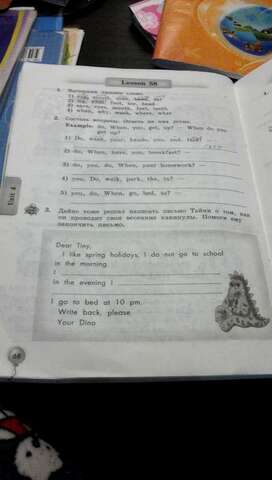 Lesson 58
2. Составь вопросы. Ответь на них устно.
Example: do, When, you, get, up? — When do you
get up?
1) Do, wash, your, hands, you, and, face? —
2) do, When, have, you, breakfast? —
3) do, you, do, When, your homework? —
4) you, Do, walk, park, the, to? —
5) you, do, When, go, bed, to? —
3. Дейно тоже решил написать письмо Тайни о том, как
он проводит свои весенние каникулы. Помоги ему
закончить письмо.
Dear Tiny,
I like spring holidays. I do not go to school
in the morning.
I
In the evening I
I go to bed at 10 pm.
Write back, please.
Your Dino
Unit 4
68